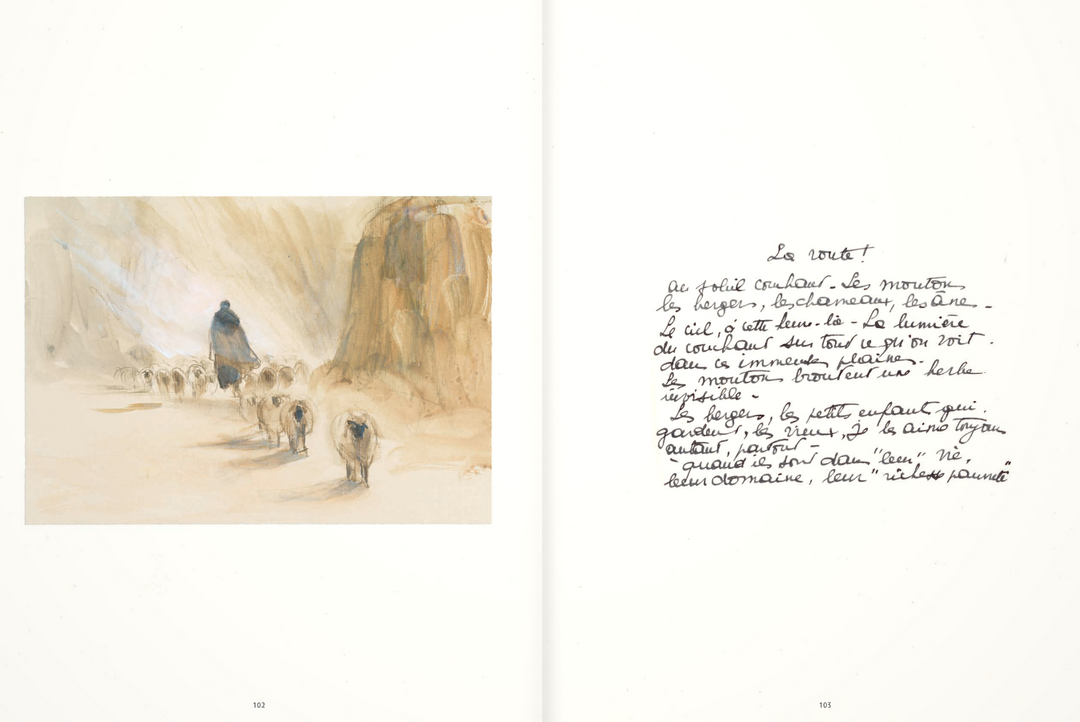 La route!
au soleil couchant - Les moutons
les bergers, les chameaux, les âne -
Le ciel, à cette heure-là - La lumière
du couchant sur tout ce qu'on voit.
dans ces immenses plaines -
Les moutons broutent une herbe
invisible -
Les bergers, les petits enfants qui
gardent, les vieux, Je les aime toujours
autant, partout -
- quand ils sont dans "leur" vie,
leur domaine, leur "richesse pauvreté"
102
103